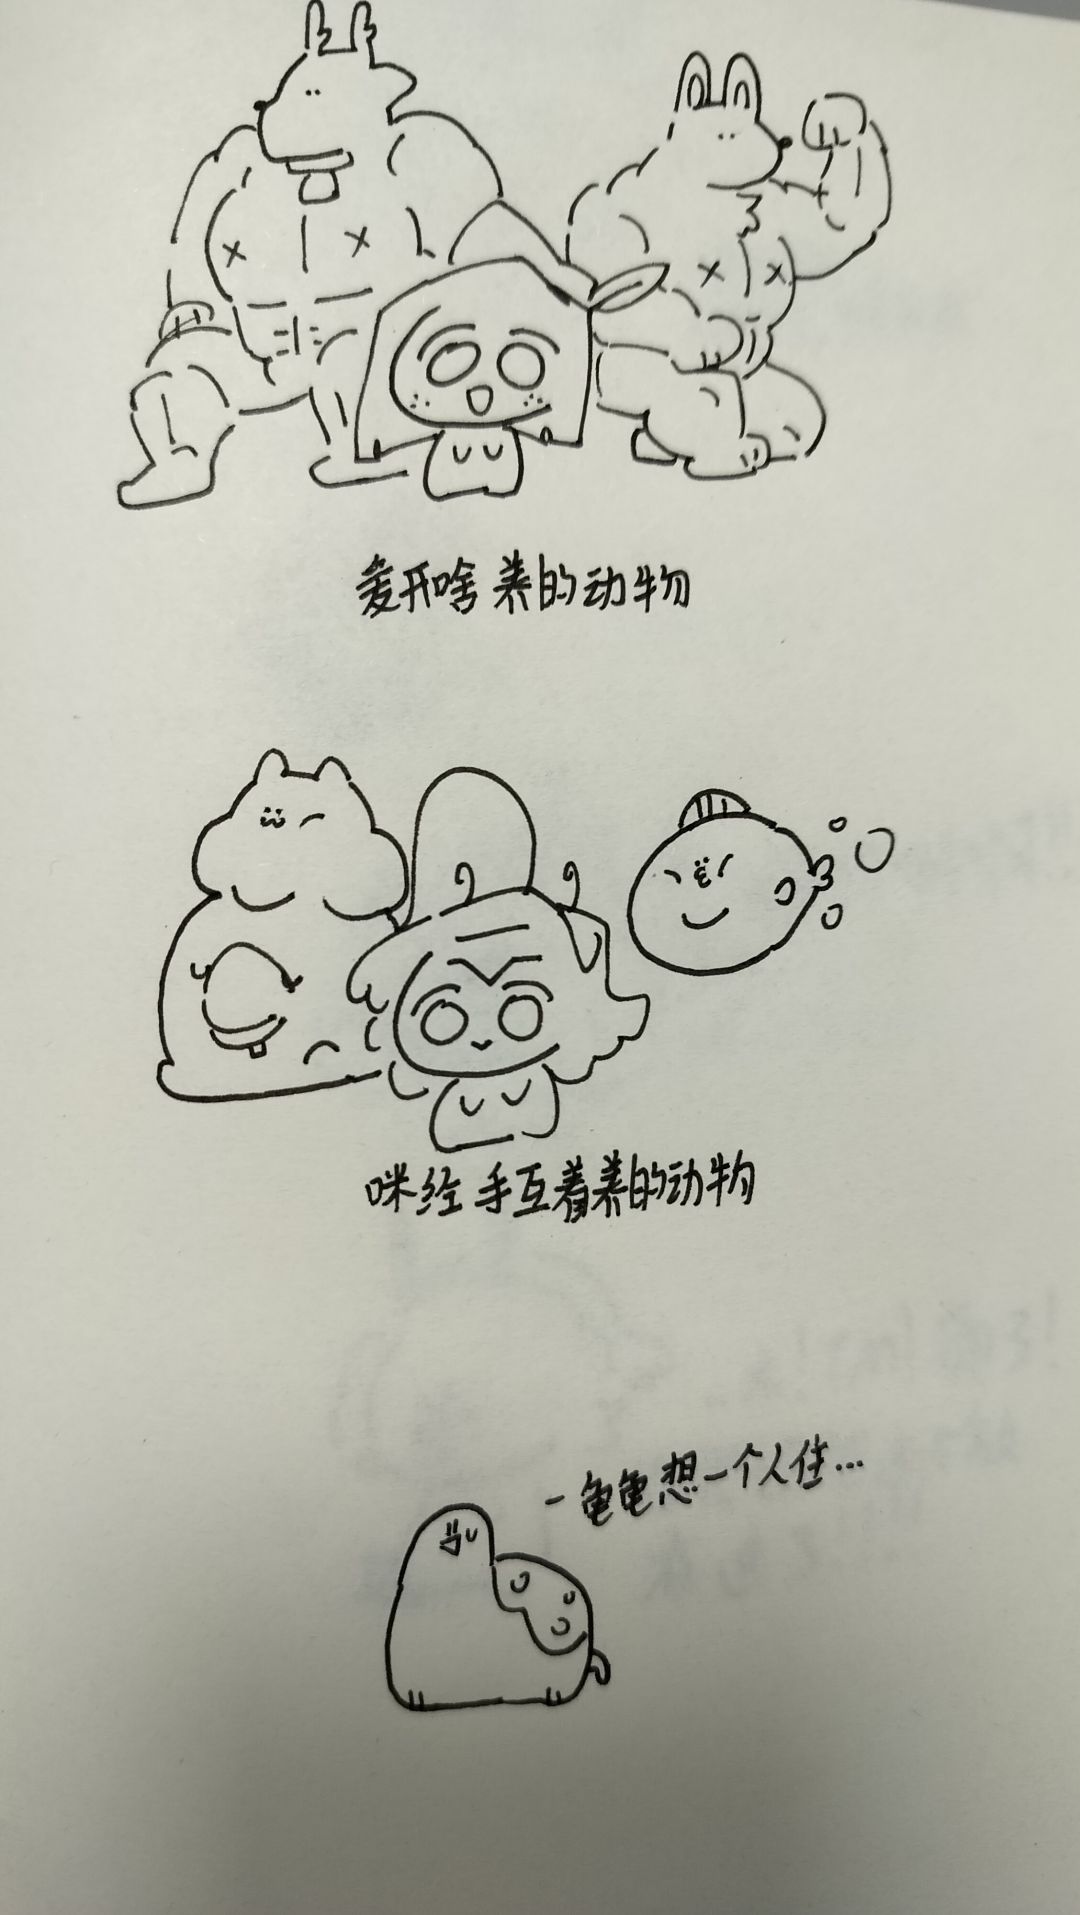 麦开啥 养的动物
咪经 手互着养的动物
一龟龟想一个人住...